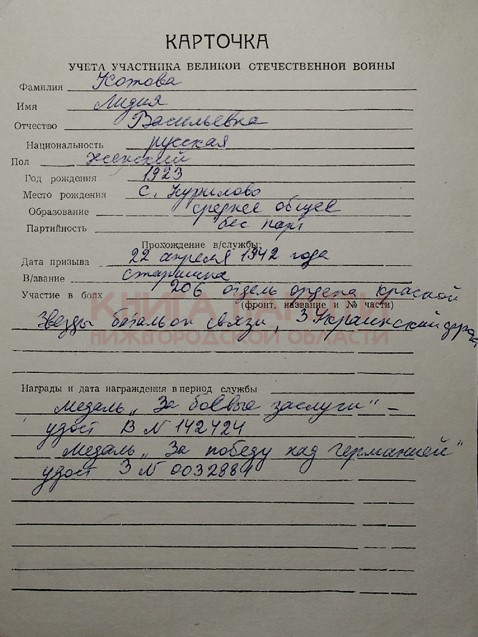 КАРТОЧКА
УЧЕТА УЧАСТНИКА ВЕЛИКОЙ ОТЕЧЕСТВЕННОЙ ВОЙНЫ
Фамилия Котова
Имя Лидия
Отчество Васильевна
Национальность русская
Пол женский
Год рождения 1923
Место рождения с. Курилово
Образование среднее общее
Партийность бес парт
Прохождение в/службы:
Дата призыва 22 апреля 1942 года
В/звание старшина
Участие в боях 206 отдель ордена красной
(фронт, название и № части)
КНИГА ПАМЯТИ
Звезды батальон связи, 3 Украинский фронт
НИЖЕГОРОДСКОЙ ОБЛАСТИ
Награды и дата награждения в период службы
медаль „За боевые заслуги" –
удост В № 142424
Медаль „За победу над Германией"
удост З № 0032884